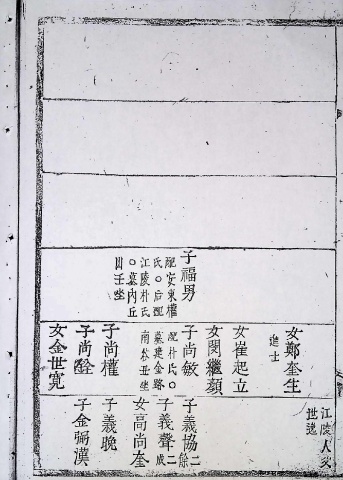 子福男
配安東權
氏○后配
江陵朴氏
○墓內丘
田壬坐
女鄭奎生
進士
女崔起立
女閔繼頦
子尚敏
配朴氏○
子尚權
子尚銓
女金世寬
江陵人父
世逸
子義協
二
餘
子義聲
二
成
女高尚奎
子義晚
子金弼漢